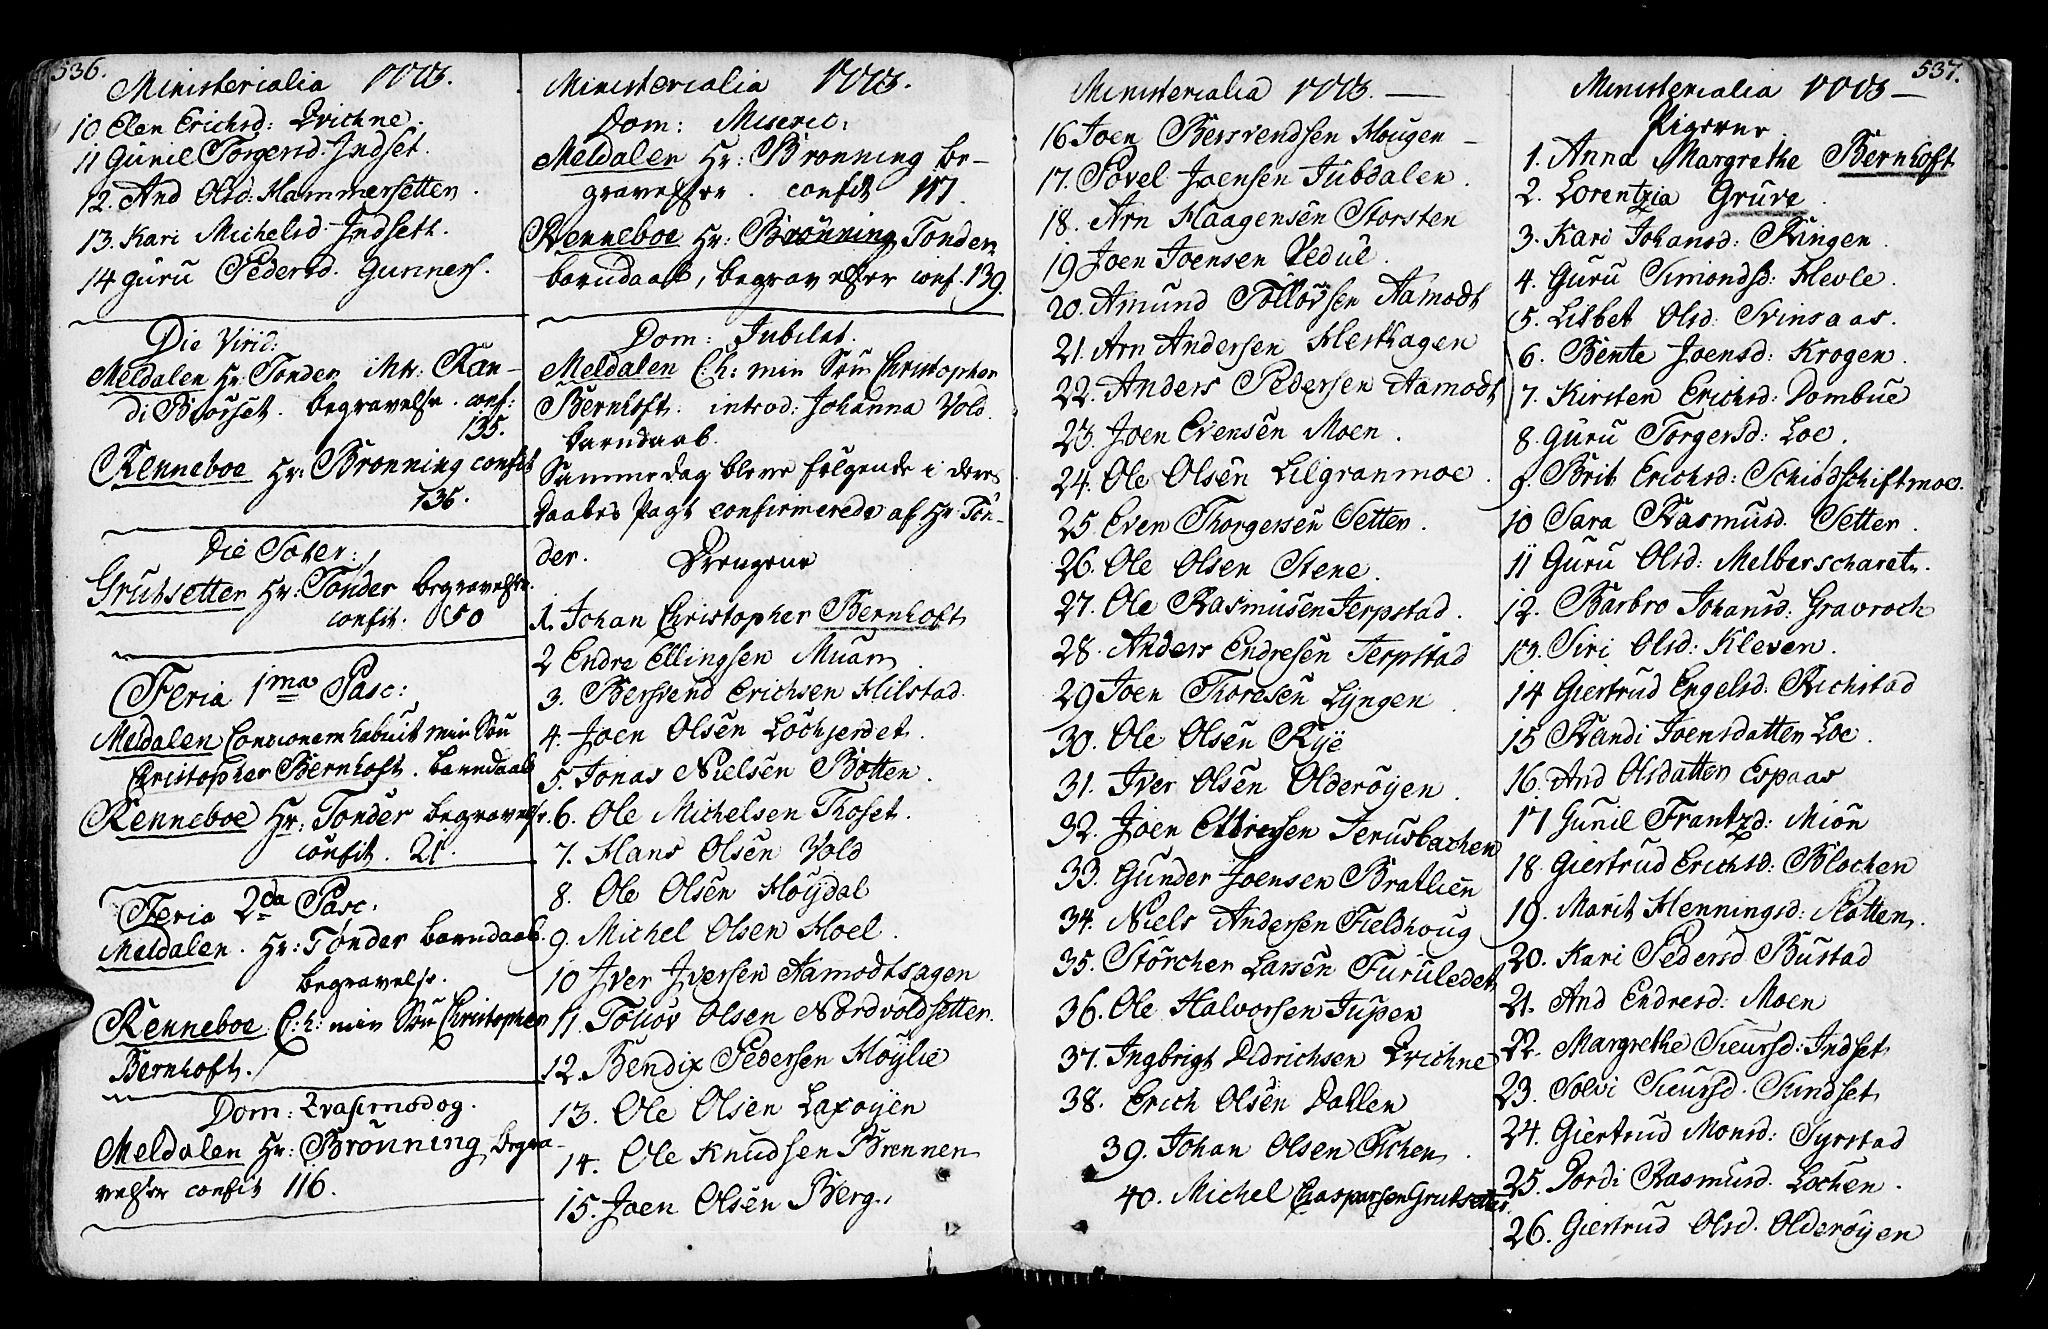 536.
Ministerialia 1773.
10 Elen Erichsd: Qvichne.
11 Gunil Torgersd. Indset.
12. And Olsd: Hammersetten.
13. Kari Michelsd. Indseth.
14 guru Pedersd. Gunnes.
Die Virid:
Meldalen Hr: Tonder intr: Ran-
di Biørset. begravelse. conf:
135.
Renneboe Hr: Brønning confit
136.
Die Sater:
Grutsetter Hr: Tønder begravelse.
confit. 50
Feria 1ma Pasc:
Meldalen Concionem habuit min Søn
Christopher Bernhoft. barndaab
Renneboe Hr: Tonder begravelse.
confit. 21.
Feria 2da Pasc:
Meldalen. Hr: Tønder barndaab.
begravelse.
Renneboe C:h: min Søn Christopher
Bernhoft.
Dom: Qvasimodog.
Meldalen Hr: Brønning begra-
velser confit 116.
Ministerialia 1773.
Dom: Miseric:
Meldalen Hr: Brønning be-
gravelser. confit 117.
Renneboe Hr: Brønning Tonder
barndaab, begravelser conf. 139.
Dom: Jubilat.
Meldalen C:h: min Søn Christopher
Bernhoft. introd: Johanna Vold.
barndaab.
Samme dag bleve følgende i deres
Daabes Pagt confirmerede af Hr Tøn-
der. Drengene
1. Johan Christopher Bernhoft
2 Endre Ellingsen Muan
3. Bersvend Erichsen Hilstad.
4. Joen Olsen Lochjerdet.
5. Jonas Nielsen Botten.
6. Ole Michelsen Thoset.
7. Hans Olsen Vold
8. Ole Olsen Høydal
9. Michel Olsen Hoel.
10 Iver Iversen Aamodtsagen
11. Tollov Olsen Nordvoldsetter.
12. Bendix Pedersen Høylie
13. Ole Olsen Laxøyen
14. Ole Knudsen Brennen
15. Joen Olsen Berg.
Ministerialia 1773.
16 Joen Bersvendsen Hougen
17. Povel Joensen Jubdalen.
18. Arn Haagensen Storsten
19 Joen Joensen Vedul.
20. Amund Tolløvsen Aamodt
21. Arn Andersen Hesthagen
22. Anders Pedersen Aamodt
23. Joen Evensen Moen.
24. Ole Olsen Lilgranmoe.
25 Even Thorgersen Setter.
26. Ole Olsen Stene.
27. Ole Rasmusen Jerpstad.
28. Anders Endresen Jerpstad
29 Joen Thoresen Lyngen.
30. Ole Olsen Rye
31. Iver Olsen Olderøyen.
32. Joen Jerusbachen
33. Gunder Joensen Bratlien
34. Niels Andersen Fieldhoug
35. Størcher Larsen Furuledet
36. Ole Halvorsen Jupen
37. Ingbrigt Didrichsen Qvichne
38. Erich Olsen Dallen
39. Johan Olsen Eichen.
40. Michel Chaspersen Grutsetter.
537.
Ministerialia 1773
Pigerne
1. Anna Margrethe Bernhoft
2. Lorentzia Gruve.
3. Kari Johansd: Ringen.
4. Guru Simondsd: Hevle.
5. Lisbet Olsd: Svinsaas.
6. Bente Joensd: Krogen.
7. Kirsten Erichsd: Dombue
8. Guru Torgersd: Loe.
9. Brit Erichsd: Schiødschiftmoe.
10 Sara Rasmusd. Setter.
11 Guru Olsd: Melberscharet.
12. Barbro Johansd: Gravroch
13. Siri Olsd: Kleven.
14 Giertrud Engelsd. Richstad
15 Randi Joensdatter Loe.
16. And Olsdatter Espaas
17 Gunil Frantzd: Mion
18. Giertrud Erichsd: Blochen
19. Marit Henningsd: Slotten.
20. Kari Pedersd Bustad
21. And Endresd: Moen
22. Margrethe Siursd: Indset
23. Solvi Siursd. Sundset
24. Giertrud Monsd: Syrstad
25. Dordi Rasmusd. Lochen.
26. Giertrud Olsd. Olderøyen